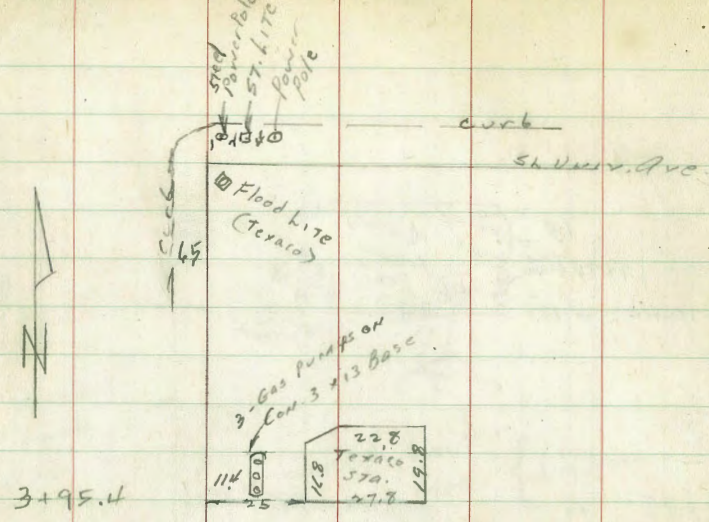 Steel
Power Pole
ST. LITE
Power
Pole
curb
Sh. Univ. Ave.
curb
65
Flood Lite
(Texaco)
N
3-Gas pumps on
Con. 3 x 13 Base
22.8
Texaco
Sta.
27.8
16.8
19.8
11.4
25
3+95.4